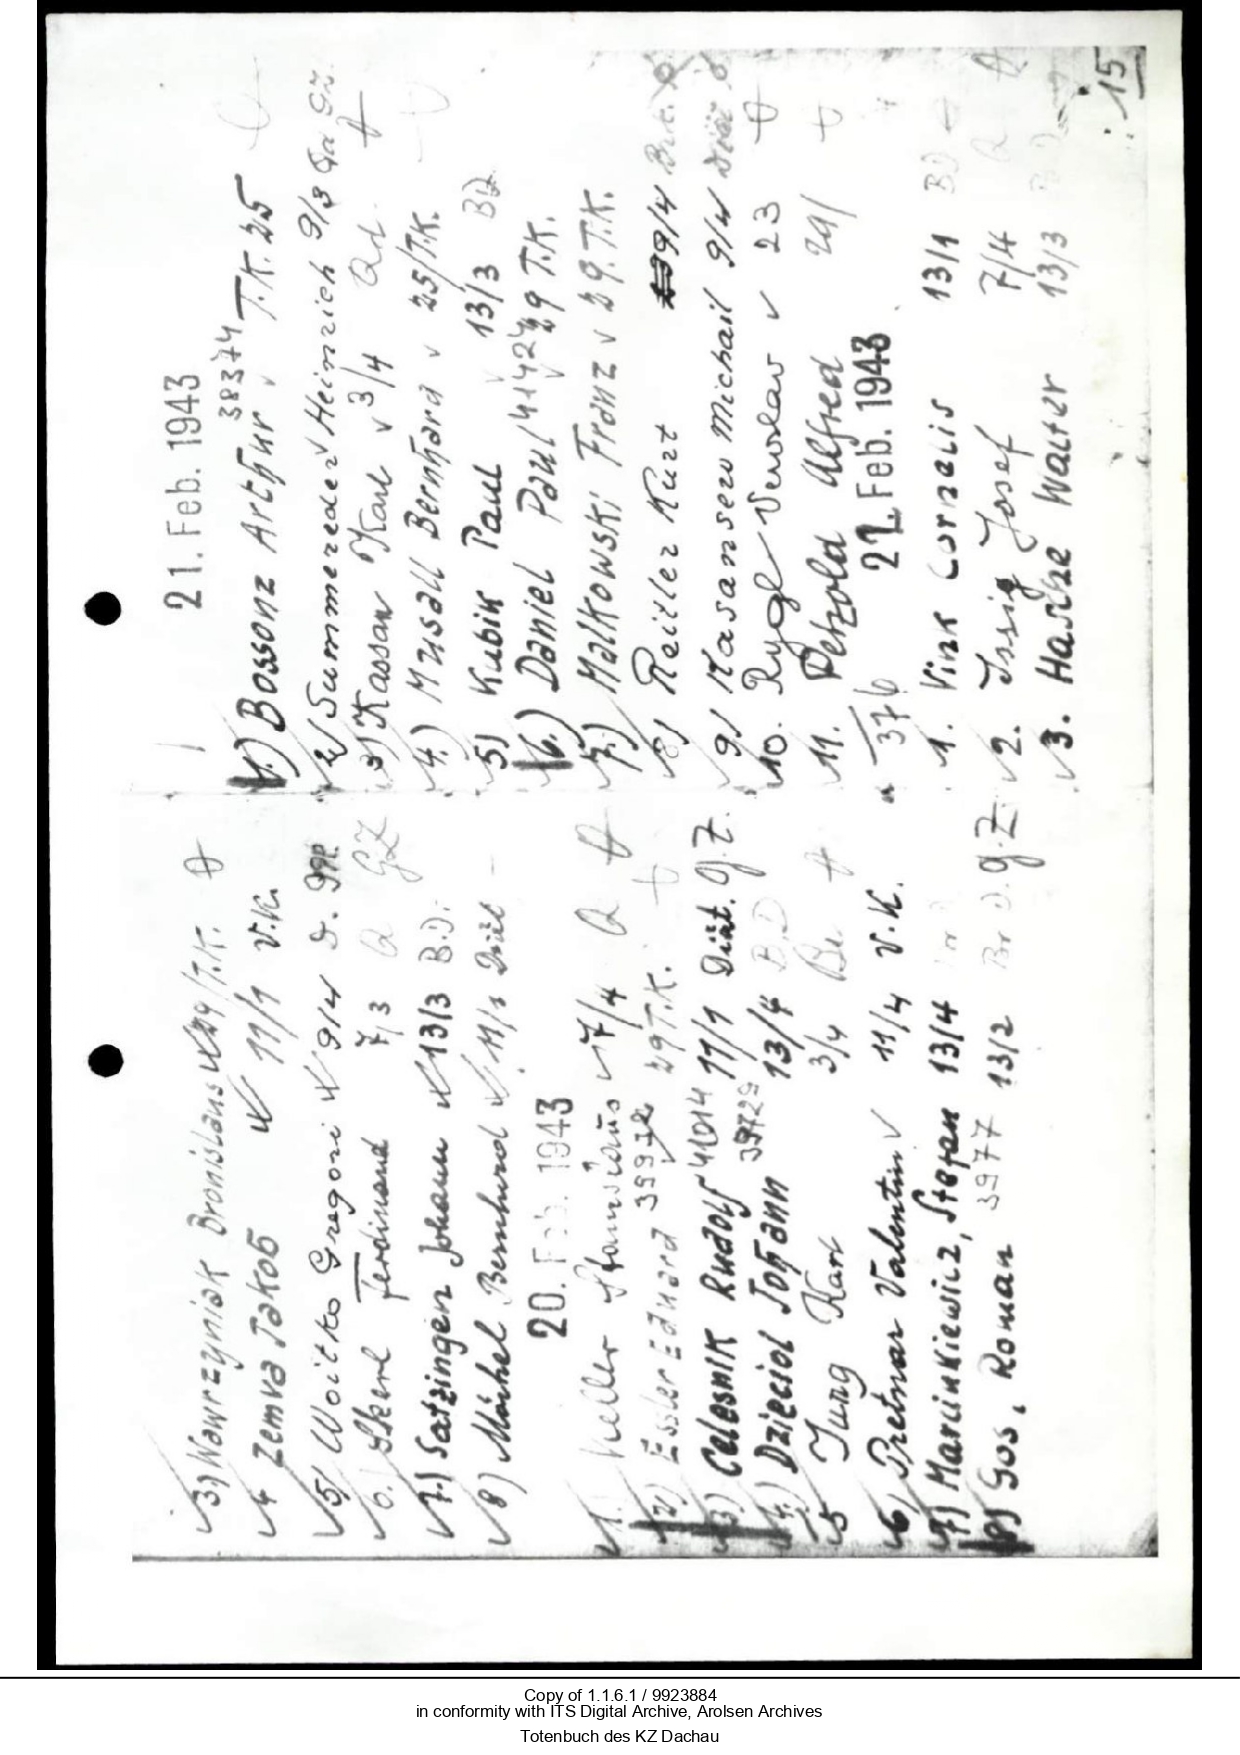 3) Wawrzyniak Bronislaus 29/T.K.
4 Zemva Jakob 11/1 V.K.
5) Woitko Gregori 9/4 D.
6.) Skerl Ferdinand 7/3 Q GZ
7.) Satzinger Johann 13/3 B.D.
8) Michel Bernhard 11/1 Diät
20. Feb. 1943
1.) Keller Stanislaus 7/4 Q
2) Essler Eduard 39932 29 T.K.
3) Celesnik Rudolf 41014 11/1 Diät. G.Z.
4.) Dzieciol Johann 39729 13/4 B.D
5 Jung Karl 3/4
6) Pretnar Valentin 11/4 V.K.
7) Marcinkiewicz, Stefan 13/4
8) Gos, Roman 3977 13/2 Br D. G.Z.
21. Feb. 1943
38374
1.) Bossonz Arthur T.K. 25
2) Summereder Heinrich 9/3 GZ.
3) Kassan Karl 3/4
4.) Musall Bernhard 25/T.K.
5) Kubik Paul 13/3 BD
6.) Daniel Paul 41424 29 T.K.
7.) Malkowski Franz 29. T.K.
8) Reitler Kurt 9/4
9) Kasanzew Michail 9/4 Diät
10. Rygl Venslav 23
11. Petzold Alfred 29/
22. Feb. 1943
376
1. Vink Cornelis 13/1 BD
2. Issig Josef 7/4 Q
3. Haschke Walter 13/3 B D
15
Copy of 1.1.6.1 / 9923884
in conformity with ITS Digital Archive, Arolsen Archives
Totenbuch des KZ Dachau